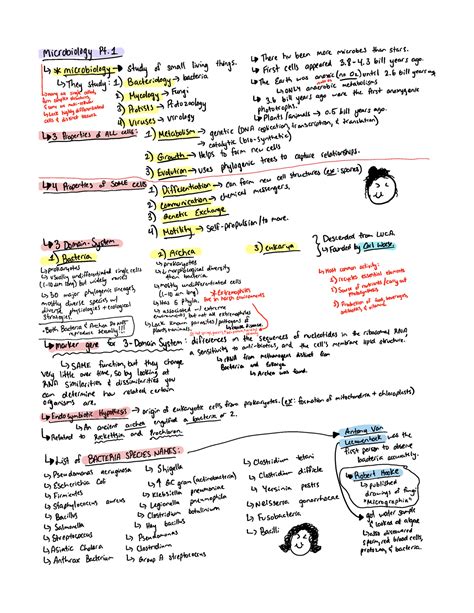 Microbiology Pt. 1
↳ * microbiology → study of small living things.
↳ They study: 1) Bacteriology → bacteria
2) Mycology → Fungi
3) Protists → Protozoology
4) Viruses → virology
↳ There have been more microbes than stars.
↳ First cells appeared 3.8-4.3 bill years ago.
↳ The Earth was anoxic (no O₂) until 2.6 bill years ago
↳ only anaerobic metabolisms
↳ 3.6 bill years ago were the first anoxygenic phototrophs.
↳ Plants/animals → 0.5 bill years ago.
↳ 3 Properties of ALL cells:
1) Metabolism → genetic (DNA replication, transcription, & translation)
→ catalytic (bio-synthetic)
2) Growth → Helps to form new cells
3) Evolution → uses phylogenic trees to capture relationships.
↳ 4 Properties of SOME cells
1) Differentiation → can form new cell structures (ex: spores)
2) Communication → chemical messengers,
3) Genetic Exchange
4) Motility → Self-propulsion/to move.
↳ 3 Domain-System
} Descended from LUCA.
↳ Founded by Carl Woese
1) Bacteria
↳ prokaryotes
↳ usually undifferentiated single cells
(1-10 um long) but widely varies
↳ 30 major phylogenic lineages,
mostly diverse species w/
diverse physiologies + ecological
strategies.
• Both Bacteria & Archea Do NOT
reproduce sexually!!!
2) Archea
↳ prokaryotes
↳ morphological diversity
than bacteria.
↳ mostly undifferentiated cells
(1-10 um long)
* Extremophiles
live in harsh environments
↳ Has 5 phyla.
↳ associated w/ extreme
environments, but not all extremophiles
↳ Lack known parasites/pathogens of
plants/animals.
3) eukarya
↳ Most common activity:
1) recycles essential elements
2) Source of nutrients/carry out
photosynthesis
3) Production of food, beverages,
antibiotics, & vitamins
↳ marker gene for 3-Domain System: differences in the sequences of nucleotides in the ribosomal RNA
& sensitivity to antibiotics, and the cell's membrane lipid structure.
↳ SAME function, but they change
very little over time, so by looking at
RNA similarities & dissimilarities you
can determine how related certain
organisms are.
↳ rRNA from methanogens distinct from
Bacteria and Eukarya
↳ Archea was found.
↳ Endosymbiotic Hypothesis → origin of eukaryotic cells from prokaryotes. (ex: formation of mitochondria + chloroplasts)
↳ An ancient archea engulfed a bacteria or 2.
↳ Related to Rickettsia and Prochloron.
↳ List of BACTERIA SPECIES NAMES:
↳ Pseudomonas aeruginosa
↳ Escherichia Coli
↳ Firmicutes
↳ Staphylococcus aureus
↳ Bacillus
↳ Salmonella
↳ Streptococcus
↳ Asiatic Cholera
↳ Anthrax Bacterium
↳ Shigella
↳ & GC gram (actinobacteria)
↳ Klebsiella pneumoniae
↳ Legionella pneumophila
↳ Clostridium botulinium
↳ Hay bacillus
↳ Pseudomonas
↳ Clostridium
↳ Group A streptococcus
↳ Clostridium tetani
↳ Clostridium difficile
↳ Yersinia pestis
↳ Neisseria gonorrhoeae
↳ Fusobacteria
↳ Bacilli
Antony Van
Leeuwenhoek was the
first person to observe
bacteria accurately.
Robert Hooke
↳ published
drawings of fungi
"Micrographia"
↳ got water sample
& looked at algae
↳ also discovered
sperm, red blood cells,
protozoa, & bacteria.